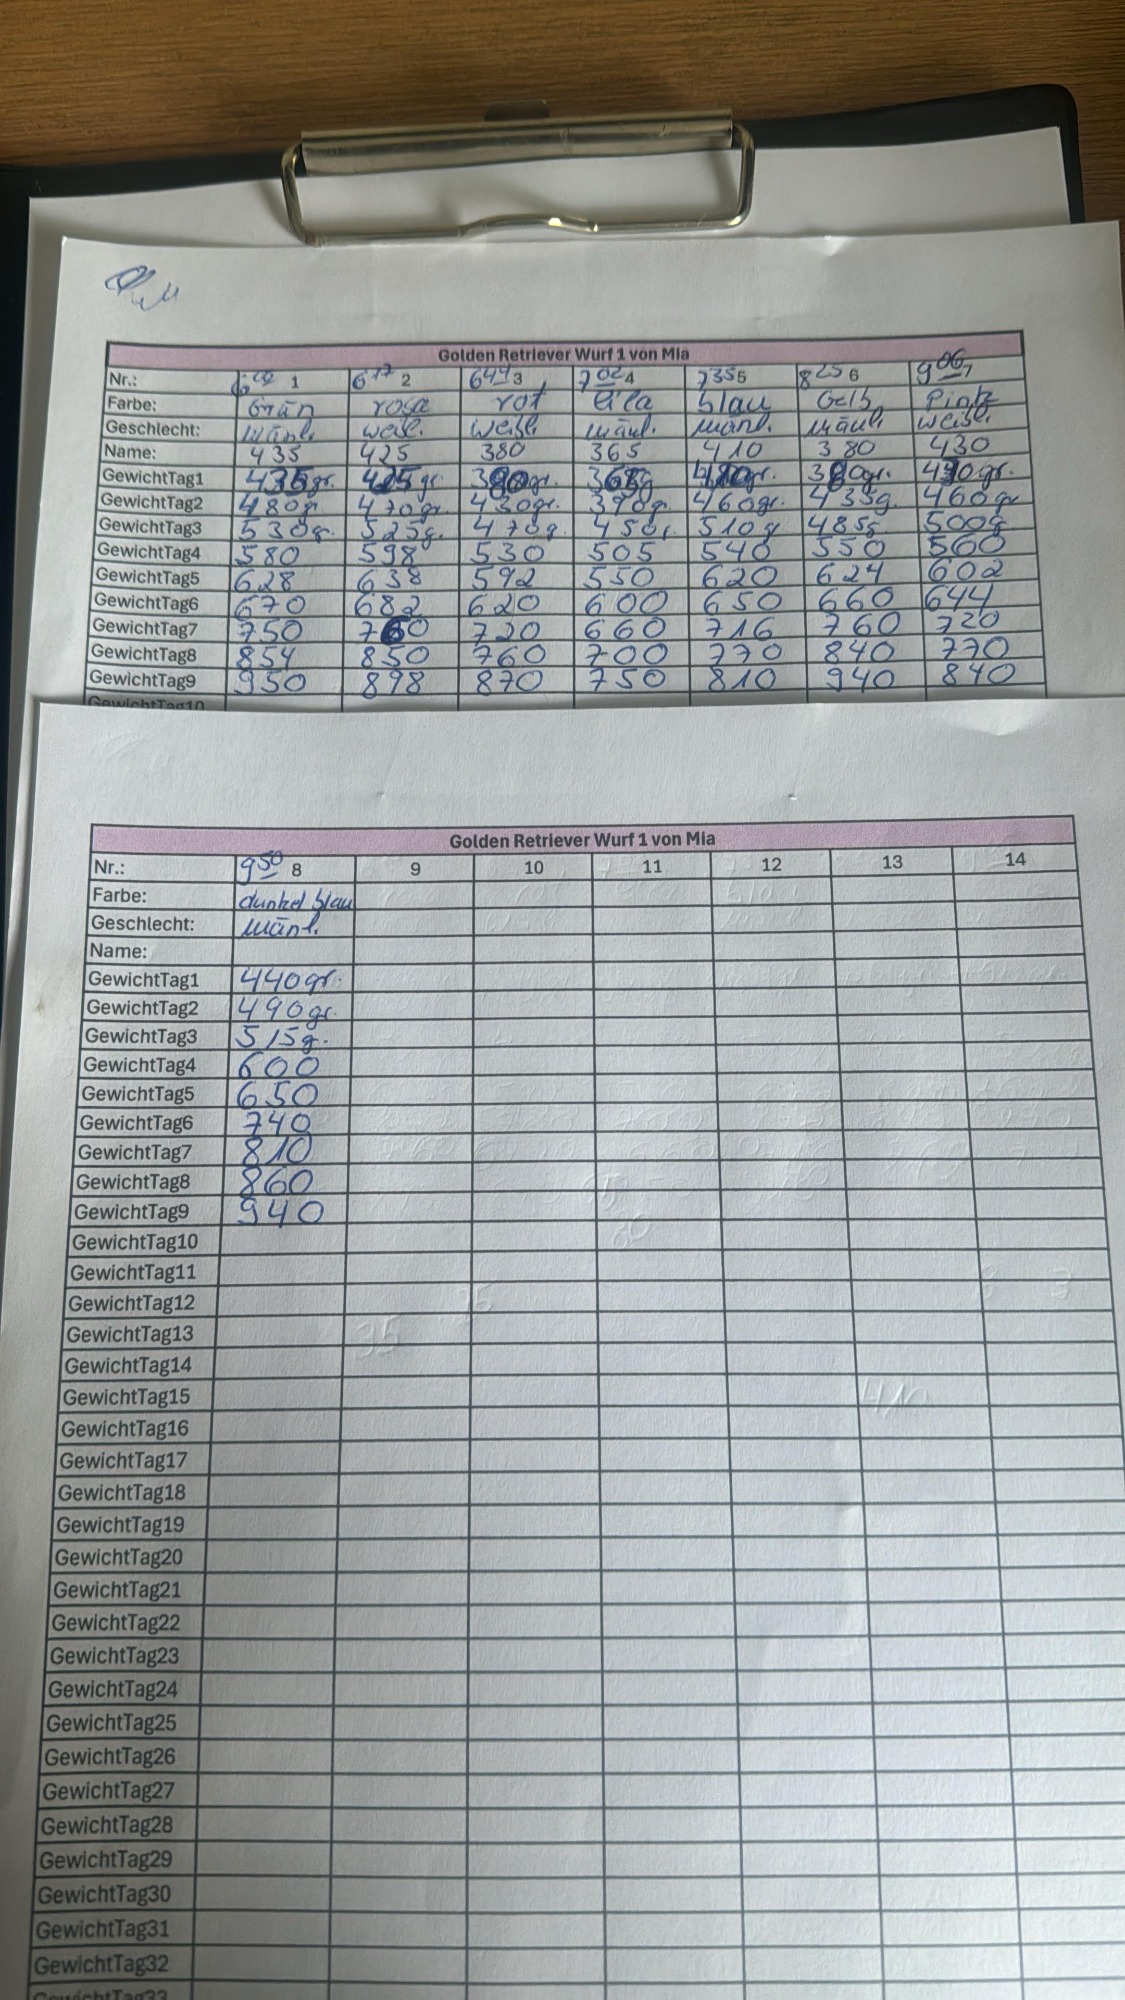 Golden Retriever Wurf 1 von Mia
Nr.: 1 6 17 2 6 44 3 7 02 4 7 35 5 8 25 6 9 06 7
Farbe: Grün rosa rot lila blau Gelb Pink
Geschlecht: mänl. weibl. weibl. mänl. mänl. mänl. weibl.
Name: 435 425 380 365 410 380 430
GewichtTag1 435gr. 425gr. 380gr. 365g 410gr. 380gr. 430gr.
GewichtTag2 480gr. 470gr. 430gr. 390gr. 460gr. 435g. 460gr
GewichtTag3 530gr. 525g. 470g. 450g. 510g 485g 500g
GewichtTag4 580 598 530 505 540 550 560
GewichtTag5 628 638 592 550 620 624 602
GewichtTag6 670 682 620 600 650 660 644
GewichtTag7 750 760 720 660 716 760 720
GewichtTag8 854 850 760 700 770 840 770
GewichtTag9 950 898 870 750 810 940 840
GewichtTag10
Golden Retriever Wurf 1 von Mia
Nr.: 9 50 8 9 10 11 12 13 14
Farbe: dunkel blau
Geschlecht: mänl.
Name:
GewichtTag1 440gr.
GewichtTag2 490gr.
GewichtTag3 515g.
GewichtTag4 600
GewichtTag5 650
GewichtTag6 740
GewichtTag7 810
GewichtTag8 860
GewichtTag9 940
GewichtTag10
GewichtTag11
GewichtTag12
GewichtTag13
GewichtTag14
GewichtTag15
GewichtTag16
GewichtTag17
GewichtTag18
GewichtTag19
GewichtTag20
GewichtTag21
GewichtTag22
GewichtTag23
GewichtTag24
GewichtTag25
GewichtTag26
GewichtTag27
GewichtTag28
GewichtTag29
GewichtTag30
GewichtTag31
GewichtTag32
GewichtTag33